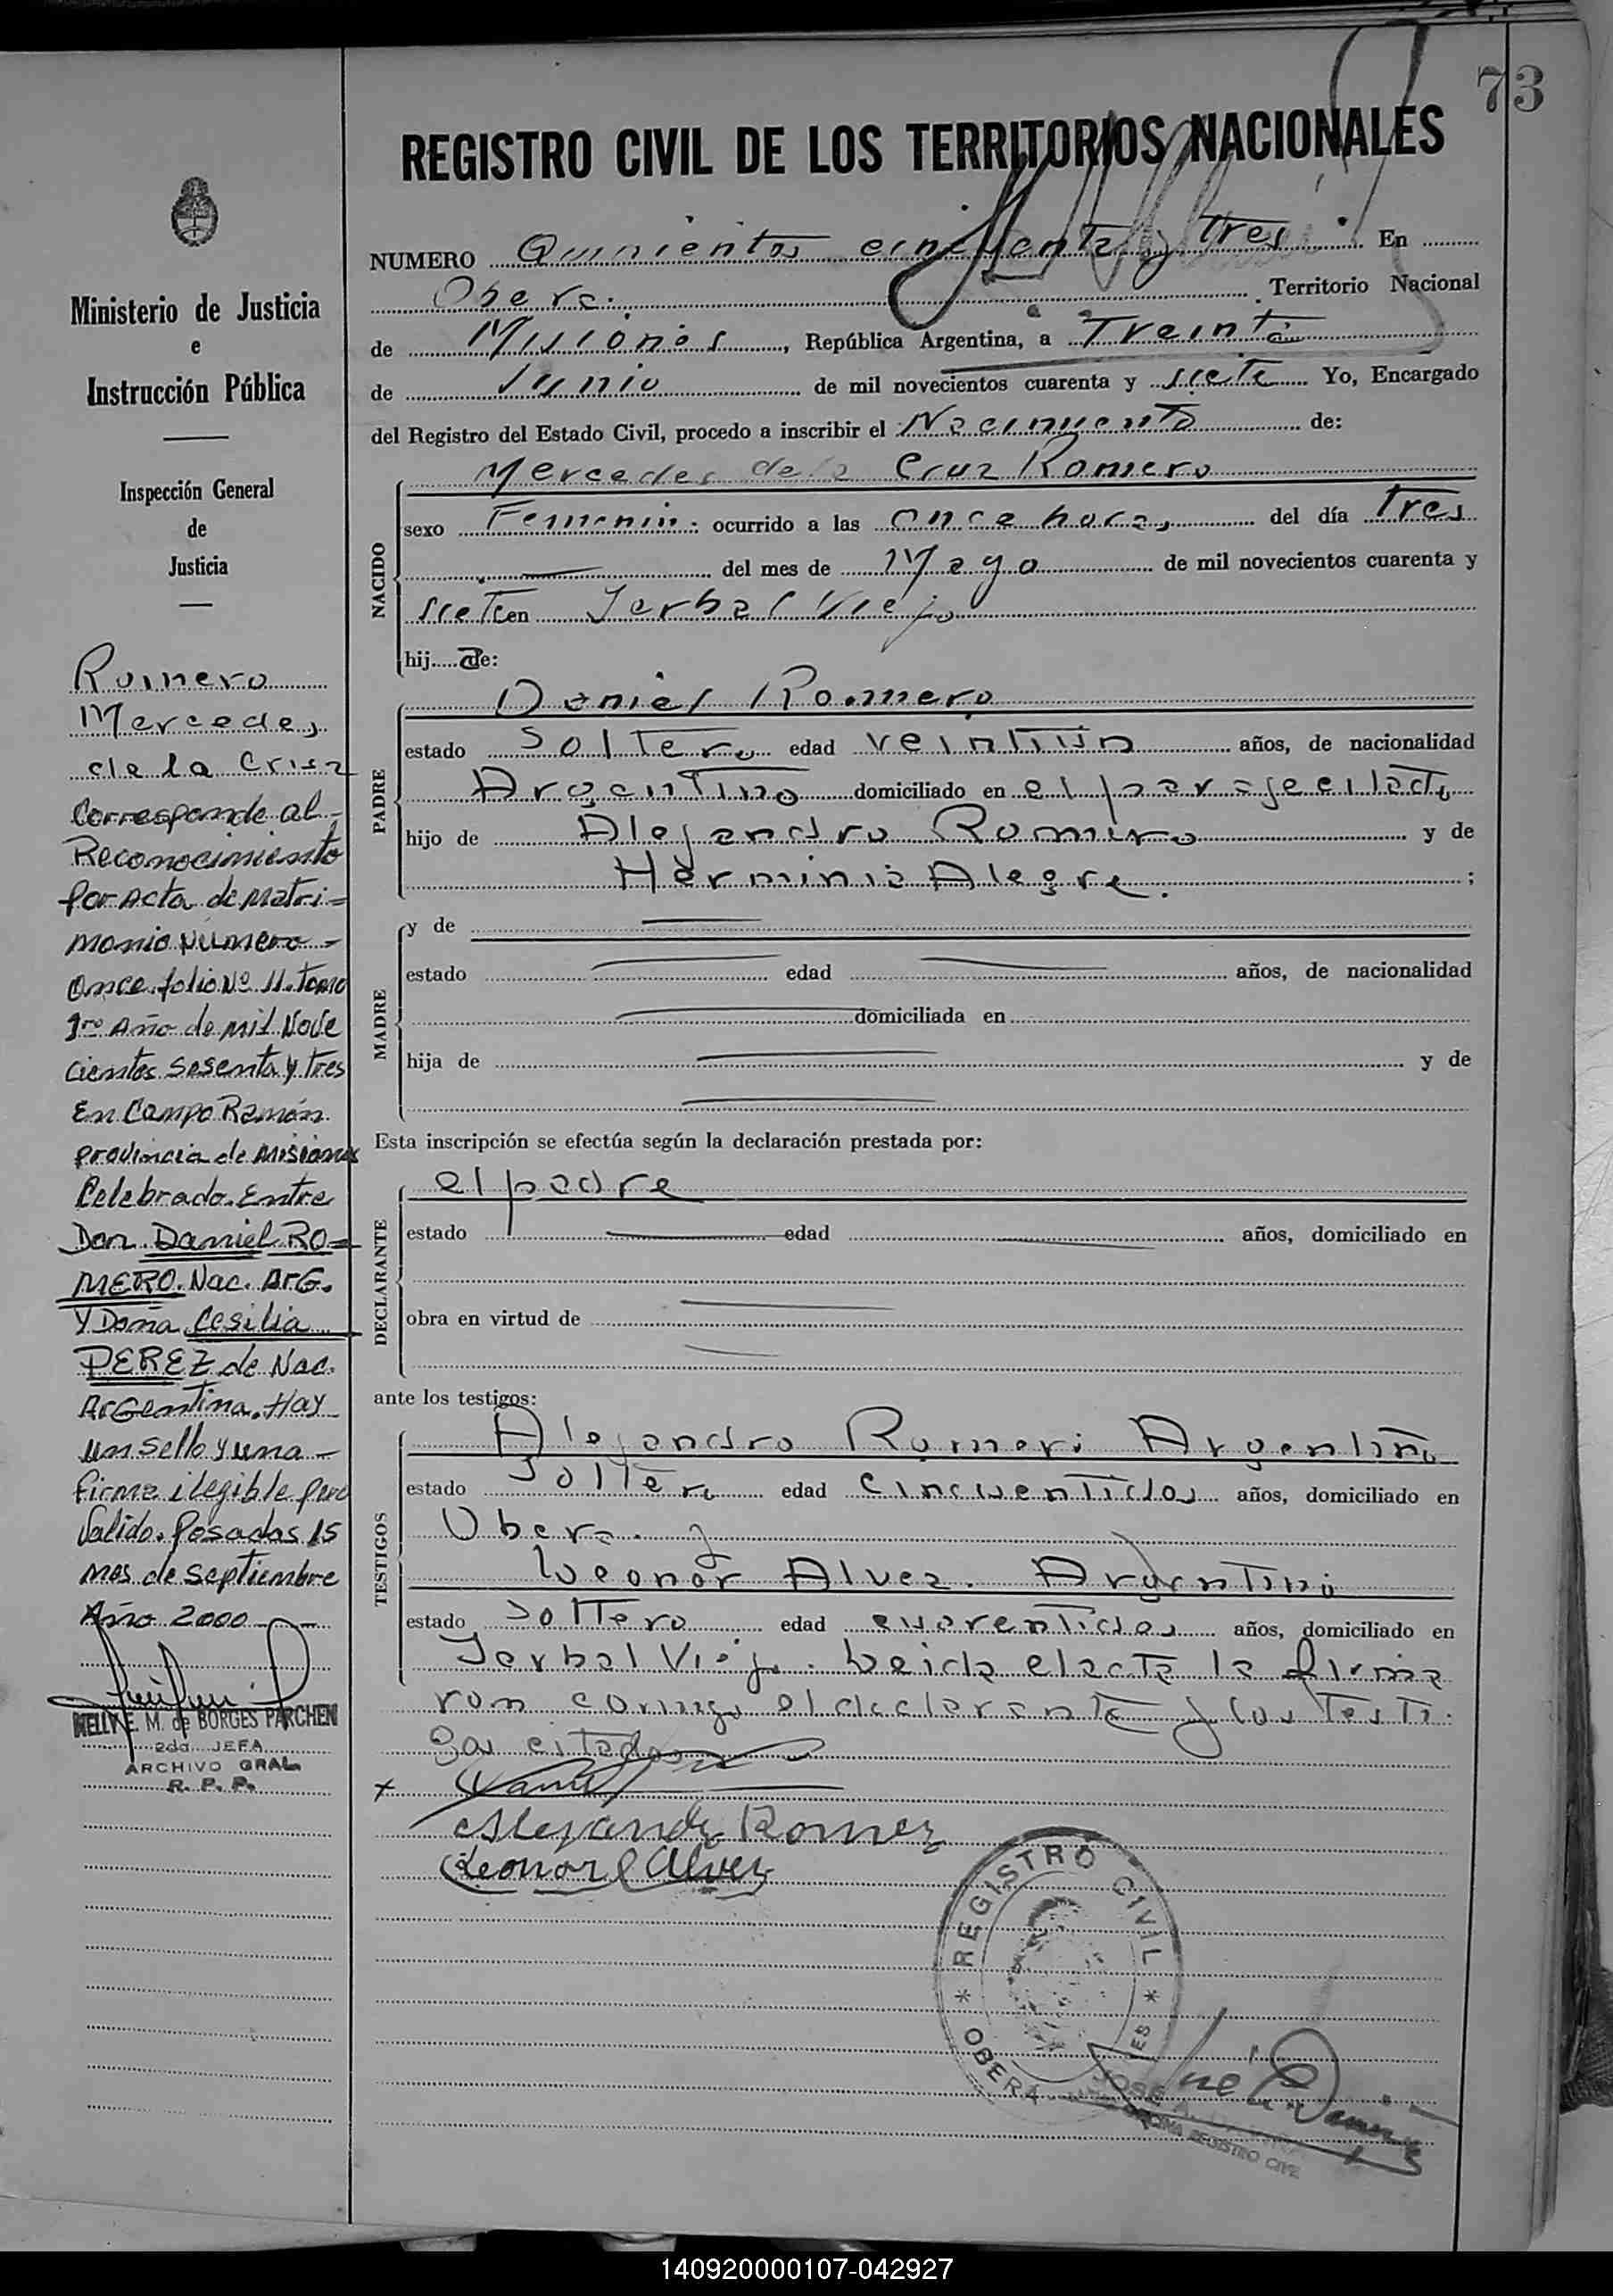 73
REGISTRO CIVIL DE LOS TERRITORIOS NACIONALES
NUMERO Quinientos cincuenta y Tres. En
Obera. Territorio Nacional
de Misiones, República Argentina, a Treinta
de Junio de mil novecientos cuarenta y siete Yo, Encargado
del Registro del Estado Civil, procedo a inscribir el Nacimiento de:
NACIDO
Mercedes de la Cruz Romero
sexo Femenino ocurrido a las once horas, del día Tres
del mes de Mayo de mil novecientos cuarenta y
siete en Yerbal Viejo
hij a de:
PADRE
Daniel Romero
estado Soltero edad veintiún años, de nacionalidad
Argentino domiciliado en el paraje citado
hijo de Alejandro Romero y de
Herminia Alegre. ;
MADRE
y de
estado edad años, de nacionalidad
domiciliada en
hija de y de
Esta inscripción se efectúa según la declaración prestada por:
DECLARANTE
el padre
estado edad años, domiciliado en
obra en virtud de
ante los testigos:
TESTIGOS
Alejandro Romero Argentino
estado Soltero edad cincuentidos años, domiciliado en
Obera. y
Leonor Alvez. Argentino
estado Soltero edad cuarentidos años, domiciliado en
Yerbal Viejo. Leida el acta la firma
ron conmigo el declarante y los Testi.
gos citados
x
Alejandro Romero
Leonor Alvez
REGISTRO CIVIL
OBERA
JOSE
OFICINA REGISTRO CIVIL
Ministerio de Justicia
e
Instrucción Pública
Inspección General
de
Justicia
Romero
Mercedes
de la Cruz
Corresponde al-
Reconocimiento
por Acta de Matri-
monio Número-
Once folio Nº 11. Tomo
1ro Año de Mil Nove
cientos Sesenta y tres
En Campo Ramón.
provincia de Misiones
Celebrado Entre
Don Daniel RO-
MERO. Nac. ArG.
Y Doña Cesilia
PEREZ de Nac.
ArGentina. Hay
un sello y una-
firma ilegible pero
Valido. Posadas 15
mes de septiembre
Año 2000
NELLY E. M. de BORGES PARCHEN
2da. JEFA
ARCHIVO GRAL.
R. P. P.
140920000107-042927